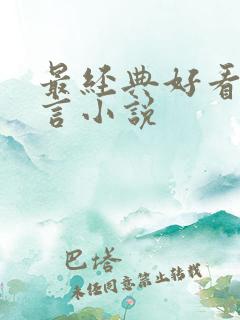 最经典好看
言小说
巴塔
未经同意禁止转载